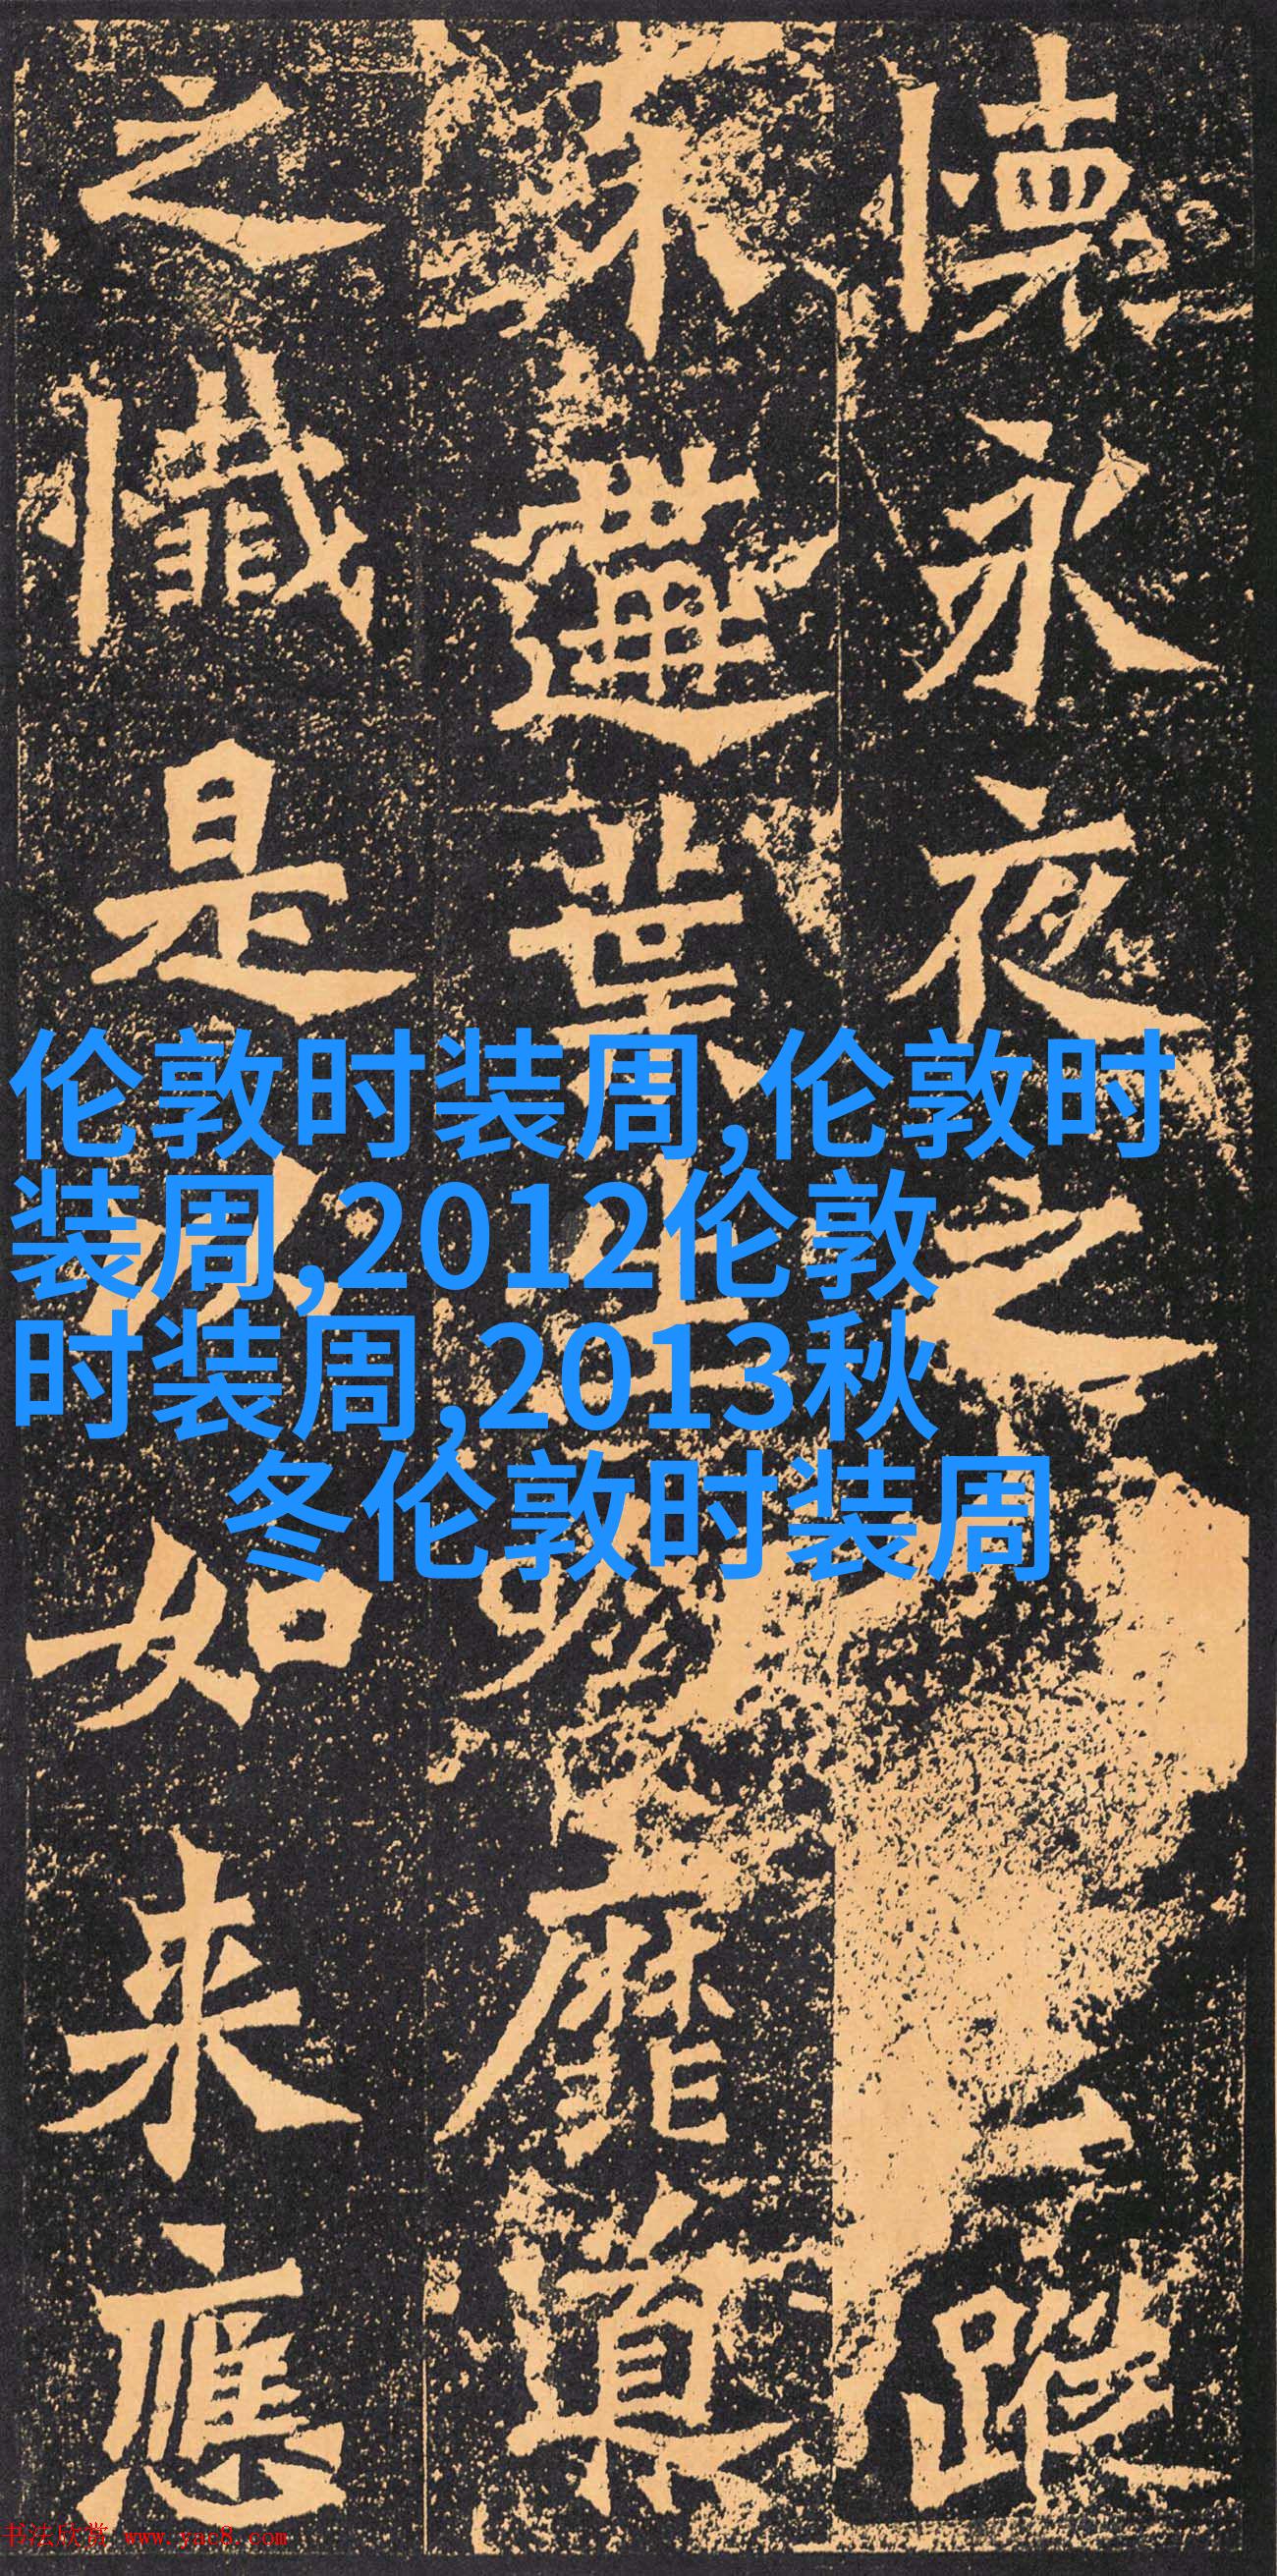 懐永夜之蹤
葉靡
之懺是以如来應
伦敦时装周,伦敦时
装周,2012伦敦
时装周,2013秋
冬伦敦时装周
书法欣赏 www.yac8.com